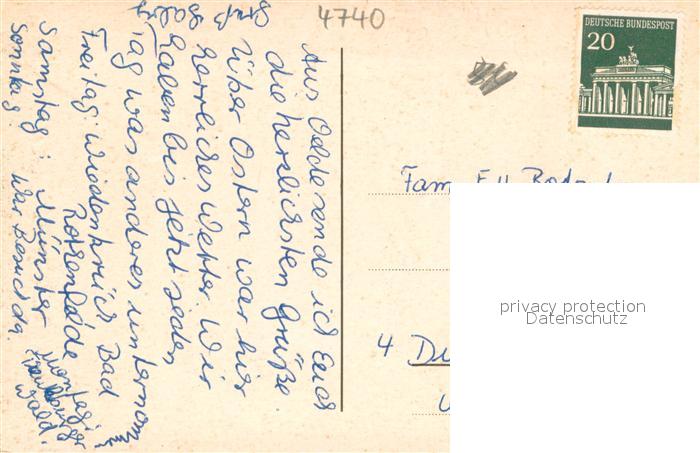 4740
DEUTSCHE BUNDESPOST
20
Aus Oelde sende ich Euch
die herzlichsten Grüße.
Über Ostern war hier
herrliches Wetter. Wir
haben bis jetzt jeden
Tag was anderes unternom
Freitag: Wiedenbrück Bad
Rothenfelde
Samstag: Münster
Sonntag: War Besuch da.
Montag:
Wald.
Fam.
4 Du
privacy protection
Datenschutz